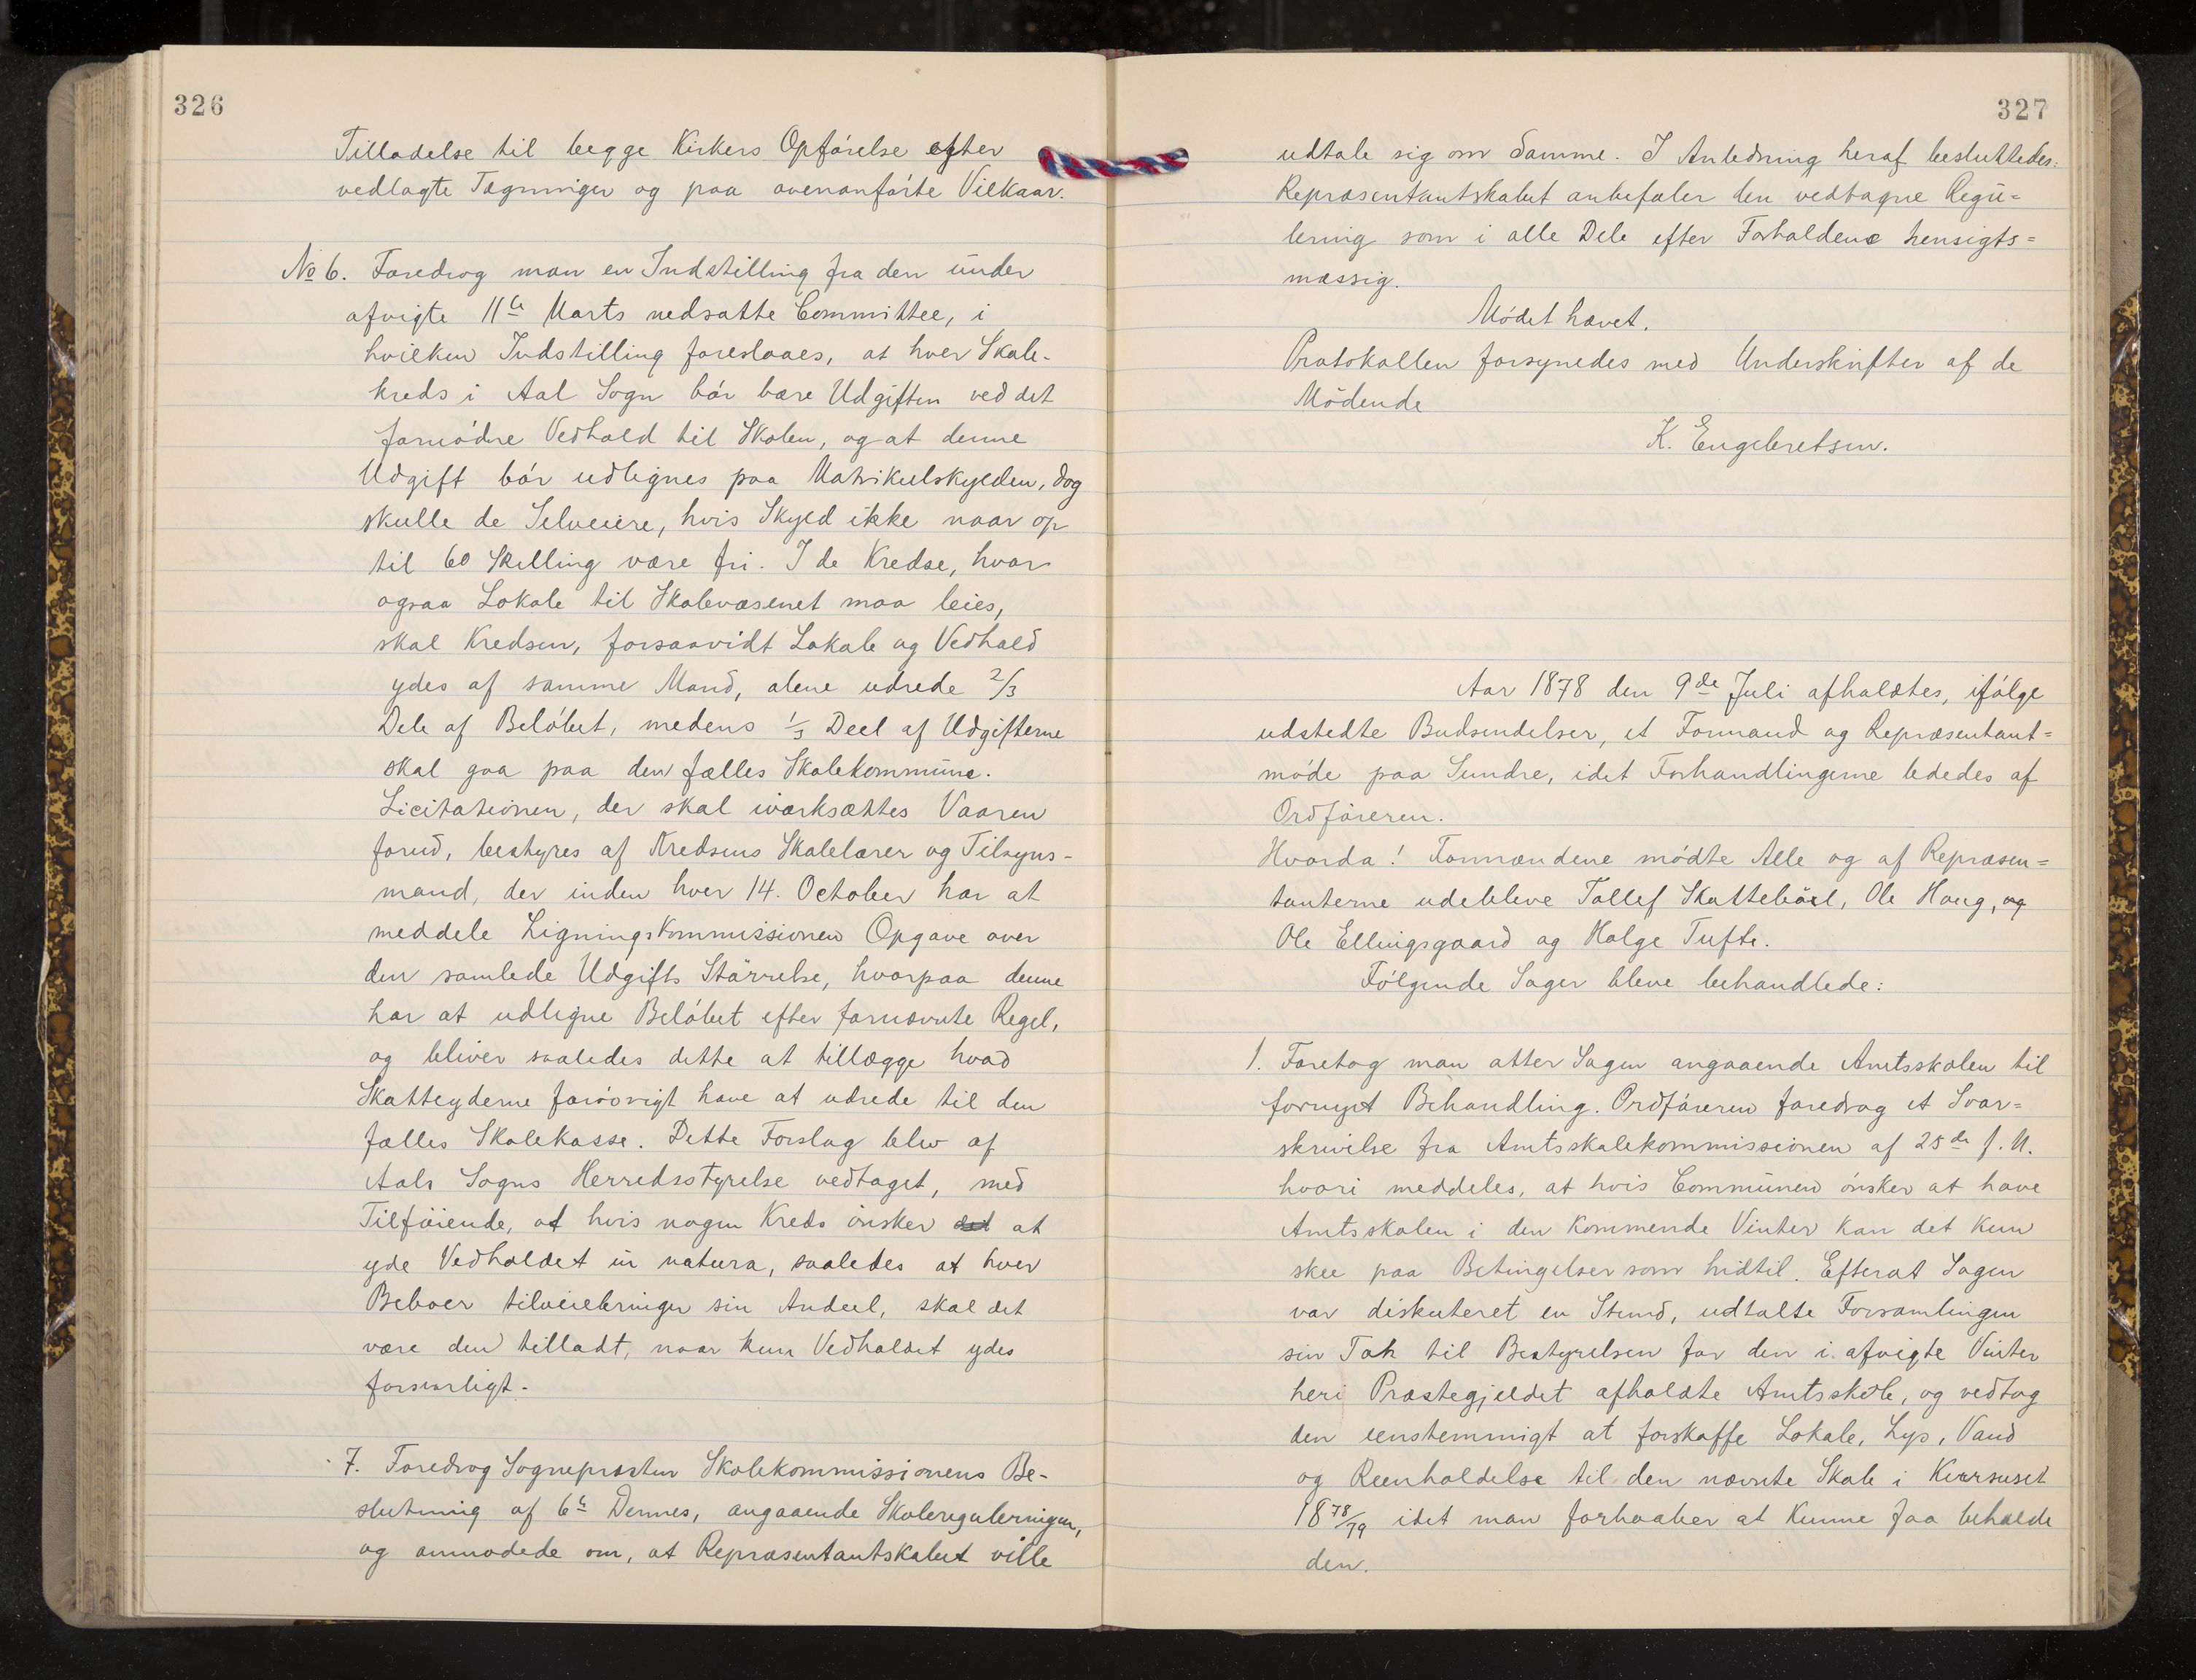 326
Tilladelse til begge Kirkers Opførelse efter
vedlagte Tægninger og paa ovenanførte Vilkaar.
No 6. Foredrog man en Indstilling fra den under
afvigte 11te Marts nedsatte Committee, i
hvilken Indstilling foreslaaes, at hver Skole-
kreds i Aal Sogn bør bære Udgiften ved det
fornødne Vedhold til Skolen, og at denne
Udgift bør udlignes paa Matrikulskylden, dog
skulle de Selveiere, hvis Skyld ikke naar op
til 60 Skilling være fri. I de Kredse, hvor
ogsaa Lokale til Skolevæsenet maa leies,
skal Kredsen, forsaavidt Lokale og Vedhold
ydes af samme Mand, alene udrede 2/3
Dele af Beløbet, medens 1/3 Deel af Udgifterne
skal gaa paa den fælles Skolekommune.
Licitationen, der skal iværksættes Vaaren
forud, bestyres af Kredsens Skolelærer og Tilsyns-
mand, der inden hver 14. October har at
meddele Ligningskommissionen Opgave over
den samlede Udgifts Størrelse, hvorpaa denne
har at udligne Beløbet efter fornævnte Regel,
og bliver saaledes dette at tillægge hvad
Skatteyderne forøvrigt have at udrede til den
fælles Skolekasse. Dette Forslag blev af
Aals Sogns Herredsstyrelse vedtaget, med
Tilføiende, at hvis nogen Kreds ønsker det at
yde Vedholdet in natura, saaledes at hver
Beboer tilveiebringer sin Andeel, skal det
være den tilladt, naar kun Vedholdet ydes
forsvarligt.
7. Foredrog Sognepræsten Skolekommissionens Be-
slutning af 6te Dennes, angaaende Skolereguleringen,
og anmodede om, at Repræsentantskabet ville
327
udtale sig om Samme. I Anledning heraf besluttedes:
Repræsentantskabet anbefaler den vedtagne Regu=
lering som i alle Dele efter Forholdene hensigts=
mæssig.
Mødet hævet.
Protokollen forsynedes med Underskrifter af de
Mødende
K. Engebretsen.
Aar 1878 den 9de Juli afholdtes, ifølge
udstedte Budsendelser, et Formand og Repræsentant=
møde paa Sundre, idet Forhandlingerne lededes af
Ordføreren.
Hvorda! Formændene mødte Alle og af Repræsen=
tanterne udebleve Tollef Skattebøl, Ole Haug, og
Ole Ellingsgaard og Holge Tufte.
Følgende Sager bleve behandlede:
1. Foretog man atter Sagen angaaende Amtsskolen til
fornyet Behandling. Ordføreren foredrog et Svar=
skrivelse fra Amtsskolekommissionen af 25de f. M.
hvori meddeles, at hvis Communen ønsker at have
Amtsskolen i den kommende Vinter kan det kun
skee paa Betingelser som hidtil. Efterat Sagen
var diskuteret en Stund, udtalte Forsamlingen
sin Tak til Bestyrelsen for den i afvigte Vinter
heri Præstegjeldet afholdte Amtsskole, og vedtog
den eenstemmigt at forskaffe Lokale, Lys, Vand
og Reenholdelse til den nævnte Skole i Kursuset
1878/79 idet man forhaaber at kunne faa beholde
den.